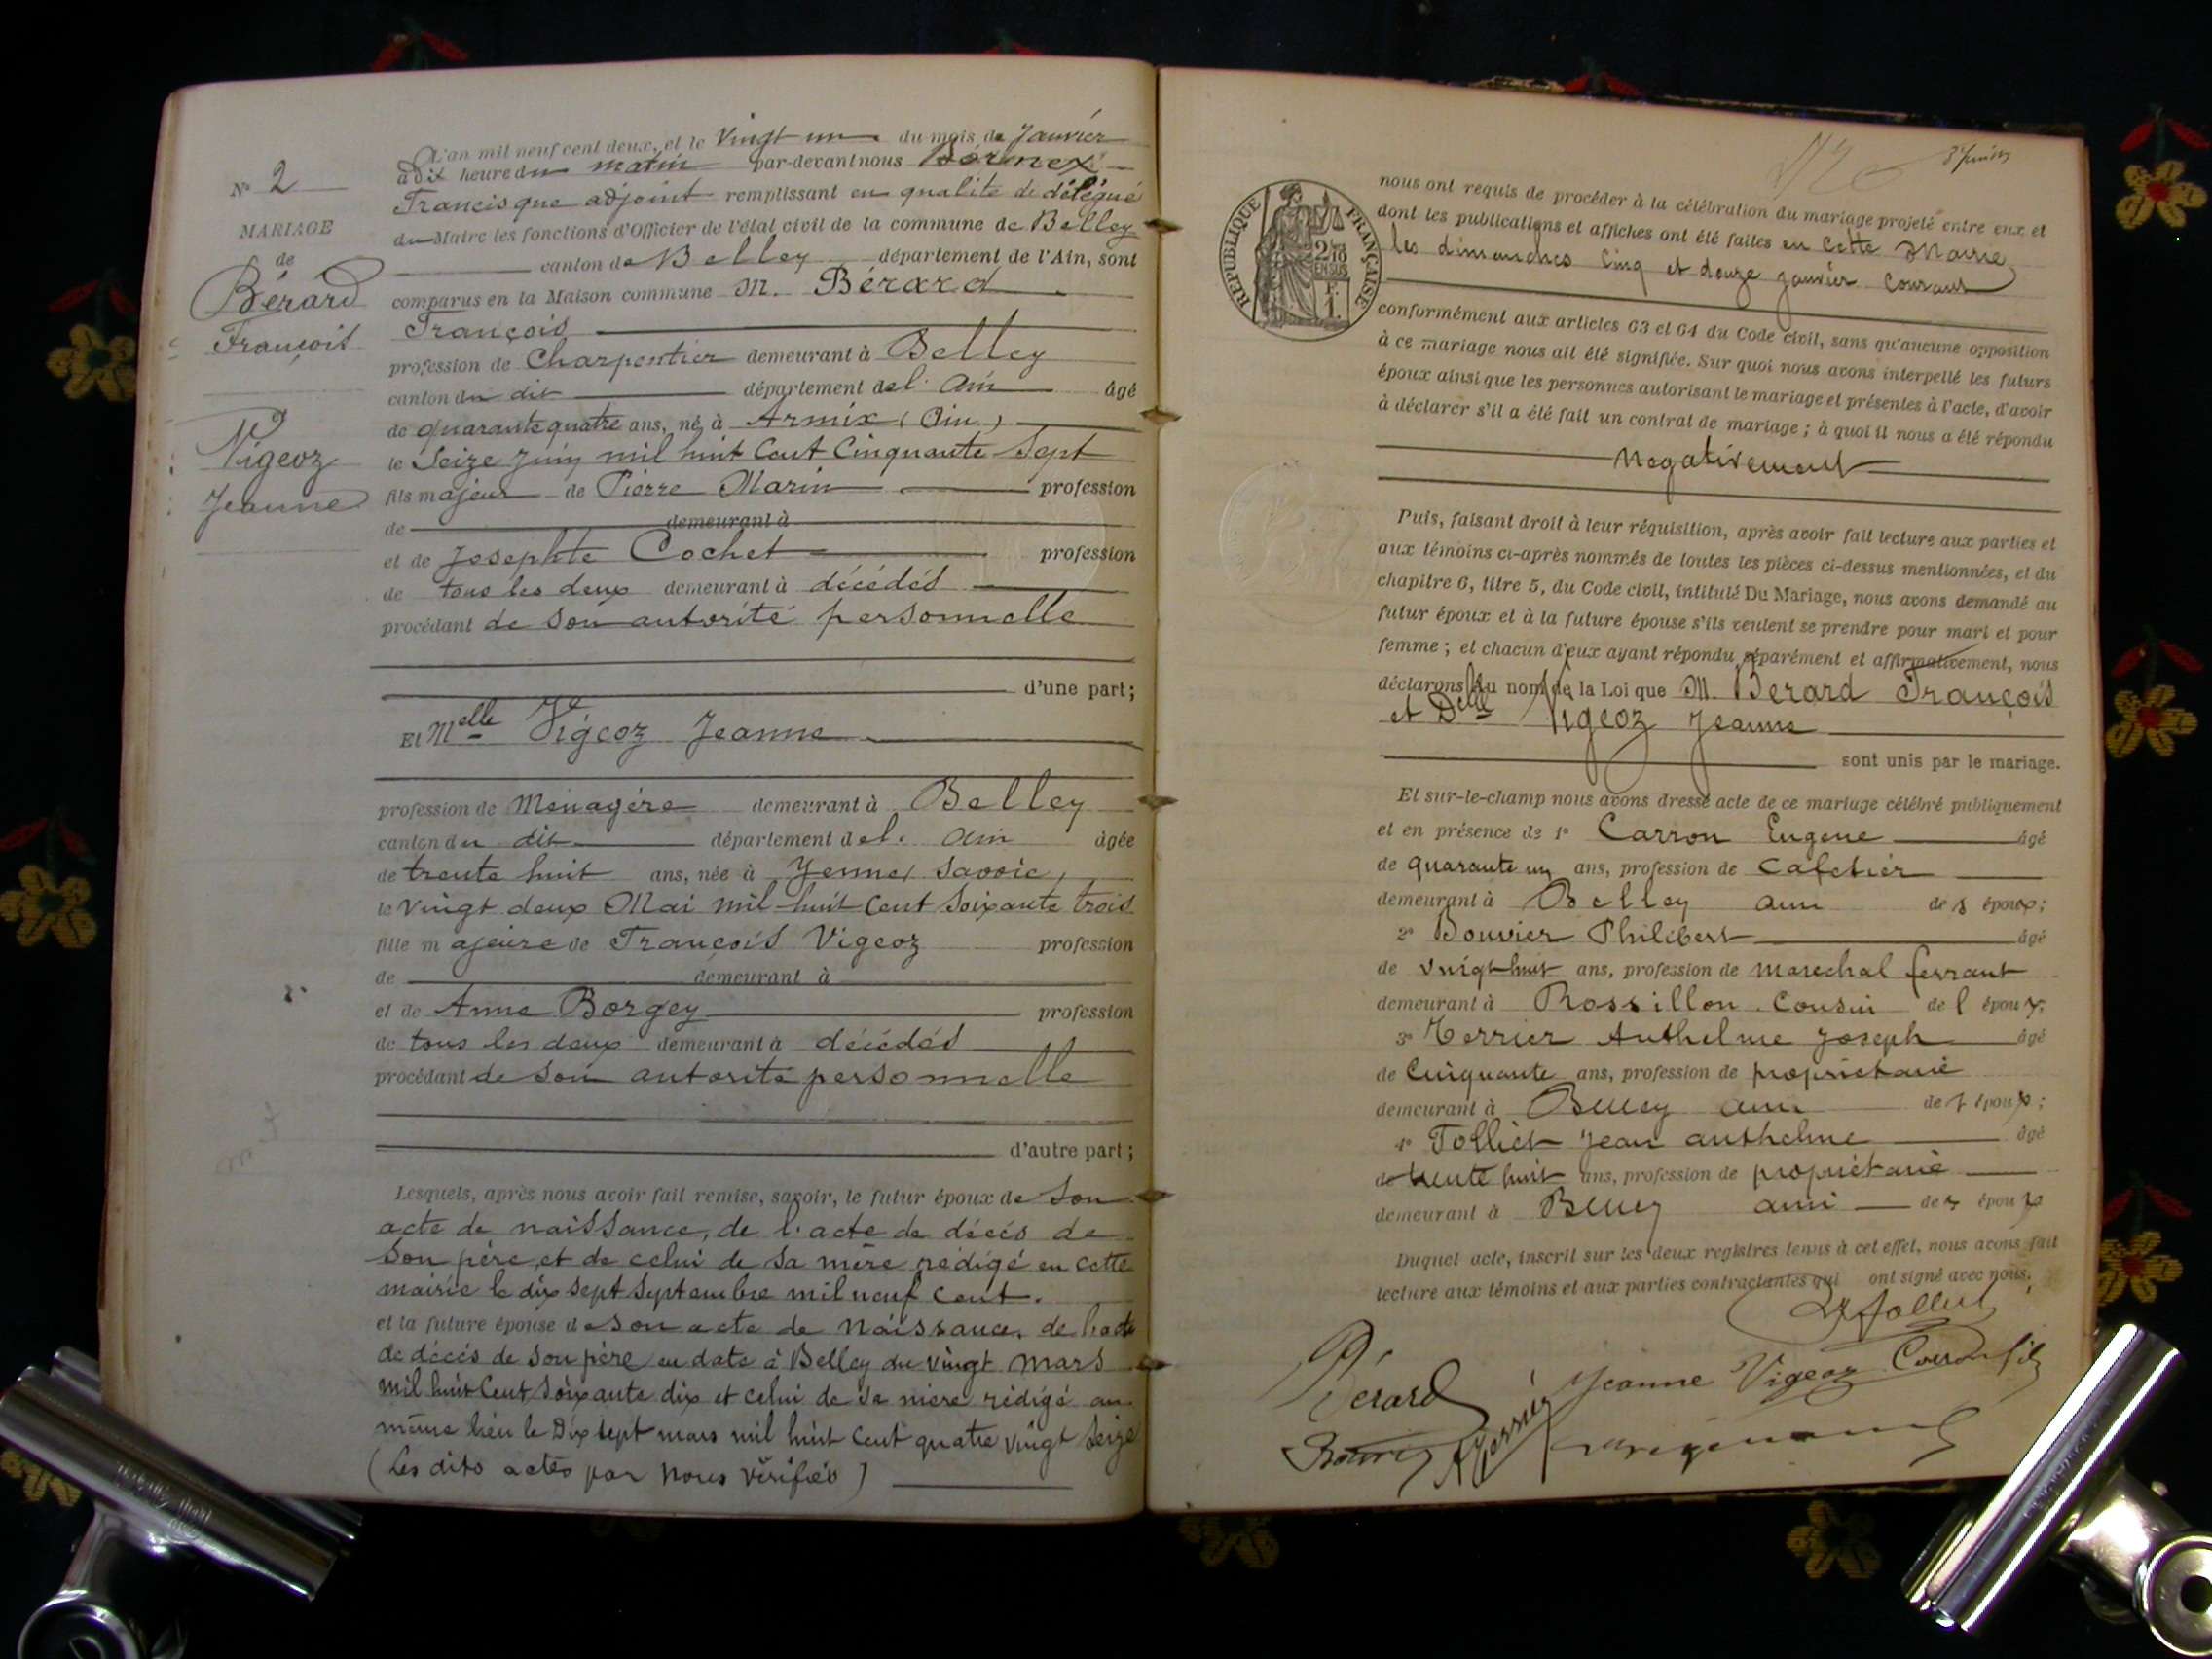 N° 2
MARIAGE
de
Bérard
François
Vigeoz
Jeanne
L'an mil neuf cent deux, et le vingt un du mois de Janvier
à dix heure du matin par-devant nous Bornex
Francisque adjoint remplissant en qualité de délégué
du Maire les fonctions d'Officier de l'état civil de la commune de Belley
canton de Belley département de l'Ain, sont
comparus en la Maison commune M. Bérard
François
profession de Charpentier demeurant à Belley
canton du dit département de l'Ain âgé
de quarante quatre ans, né à Armix (Ain)
le Seize Juin mil huit Cent Cinquante Sept
fils majeur de Pierre Marin profession
de demeurant à
et de Josephte Cochet profession
de tous les deux demeurant à décédés
procédant de son autorité personnelle
d'une part;
Et Melle Vigeoz Jeanne
profession de Ménagère demeurant à Belley
canton du dit département de l'Ain âgée
de trente huit ans, née à Yenne, Savoie,
le vingt deux Mai mil huit Cent Soixante trois
fille majeure de François Vigeoz profession
de demeurant à
et de Anne Borgey profession
de tous les deux demeurant à décédés
procédant de son autorité personnelle
d'autre part;
Lesquels, après nous avoir fait remise, savoir, le futur époux de son
acte de naissance, de l'acte de décès de
son père, et de celui de sa mère rédigé en cette
mairie le dix sept Septembre mil neuf Cent.
et la future épouse de son acte de Naissance, de l'acte
de décès de son père en date à Belley du vingt mars
mil huit Cent Soixante dix et celui de sa mère rédigé au
même lieu le Dix sept mars mil huit Cent quatre vingt Seize
(Les dits actes par nous vérifiés)
RÉPUBLIQUE FRANÇAISE
2/10
EN SUS
1 F.
nous ont requis de procéder à la célébration du mariage projeté entre eux et
dont les publications et affiches ont été faites en Cette Mairie
les dimanches Cinq et douze janvier Courant
conformément aux articles 63 et 64 du Code civil, sans qu'aucune opposition
à ce mariage nous ait été signifiée. Sur quoi nous avons interpellé les futurs
époux ainsi que les personnes autorisant le mariage et présentes à l'acte, d'avoir
à déclarer s'il a été fait un contrat de mariage; à quoi il nous a été répondu
Négativement
Puis, faisant droit à leur réquisition, après avoir fait lecture aux parties et
aux témoins ci-après nommés de toutes les pièces ci-dessus mentionnées, et du
chapitre 6, titre 5, du Code civil, intitulé Du Mariage, nous avons demandé au
futur époux et à la future épouse s'ils veulent se prendre pour mari et pour
femme; et chacun d'eux ayant répondu séparément et affirmativement, nous
déclarons au nom de la Loi que M. Bérard François
et Delle Vigeoz Jeanne
sont unis par le mariage.
Et sur-le-champ nous avons dressé acte de ce mariage célébré publiquement
et en présence de 1° Carron Eugène âgé
de quarante un ans, profession de Cafetier
demeurant à Belley ami des époux;
2° Bouvier Philibert âgé
de vingt huit ans, profession de marechal ferrant
demeurant à Rossillon Cousin de l'époux;
3° Terrier Anthelme Joseph âgé
de Cinquante ans, profession de propriétaire
demeurant à Belley ami des époux;
4° Tolliet Jean anthelme âgé
de trente huit ans, profession de propriétaire
demeurant à Belley ami des époux
Duquel acte, inscrit sur les deux registres tenus à cet effet, nous avons fait
lecture aux témoins et aux parties contractantes qui ont signé avec nous.
Bérard Jeanne Vigeoz